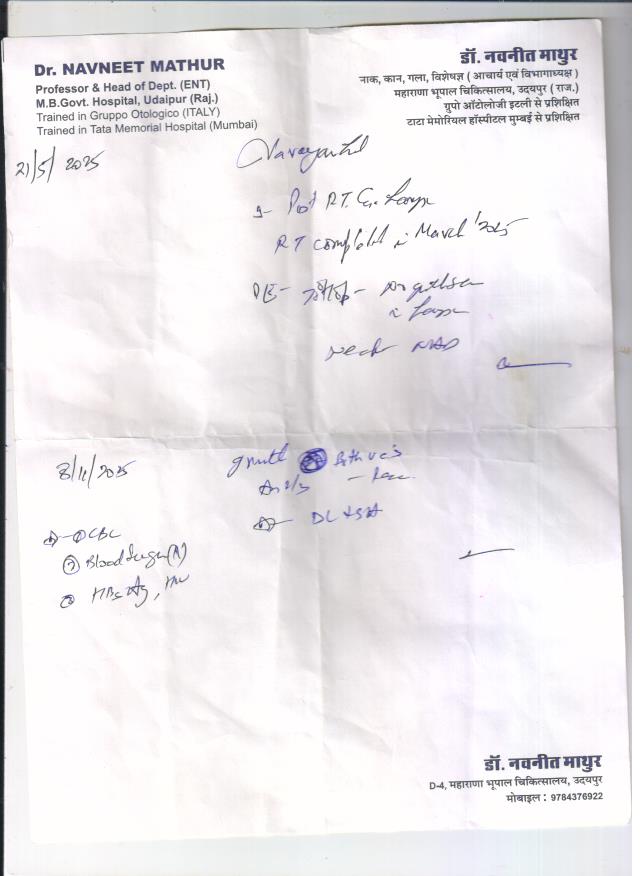 Dr. NAVNEET MATHUR
Professor & Head of Dept. (ENT)
M.B.Govt. Hospital, Udaipur (Raj.)
Trained in Gruppo Otologico (ITALY)
Trained in Tata Memorial Hospital (Mumbai)
डॉ. नवनीत माथुर
नाक, कान, गला, विशेषज्ञ ( आचार्य एवं विभागाध्यक्ष )
महाराणा भूपाल चिकित्सालय, उदयपुर ( राज.)
ग्रुपो ऑटोलोजी इटली से प्रशिक्षित
टाटा मेमोरियल हॉस्पीटल मुम्बई से प्रशिक्षित
21/5/2025
Post RT. Ca.
RT completed in March '2025
O/E -
Neck NAD
8/11/2025
growth
CBC
② Blood Sugar (R)
HBsAg, HIV
डॉ. नवनीत माथुर
D-4, महाराणा भूपाल चिकित्सालय, उदयपुर
मोबाइल : 9784376922